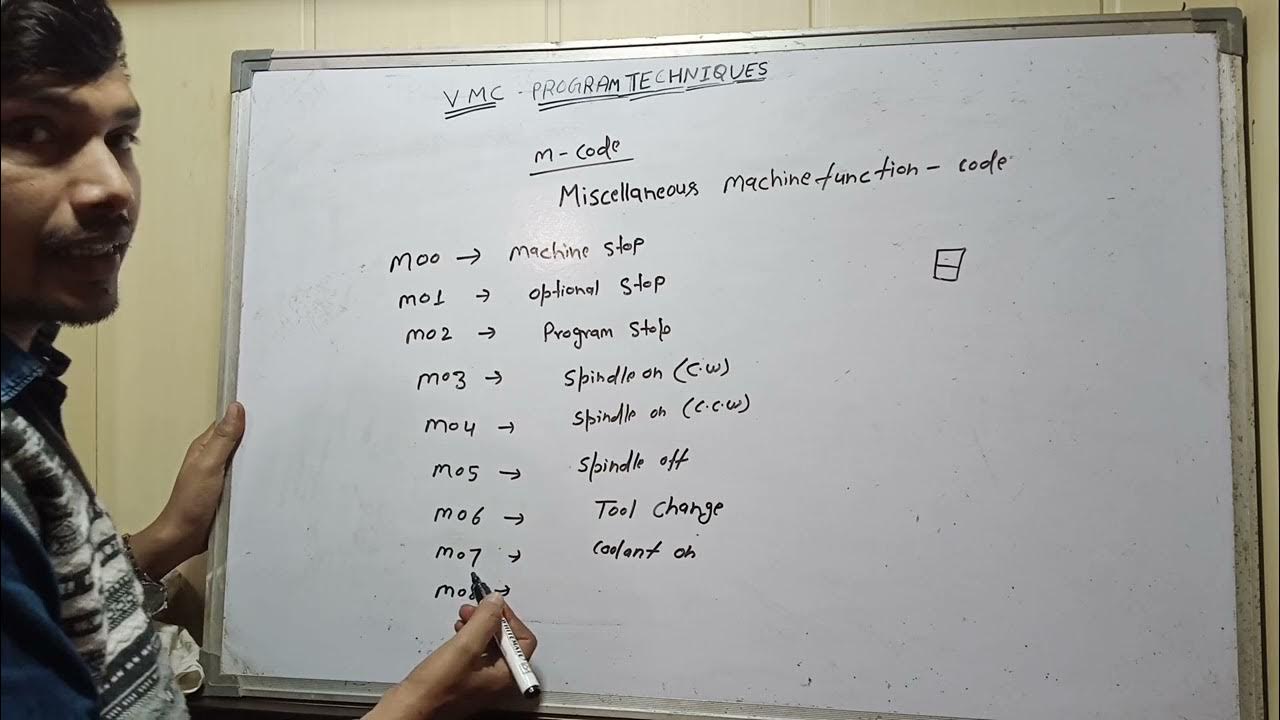 VMC - PROGRAM TECHNIQUES
M-code
Miscellaneous Machine function - code
M00 → Machine stop
M01 → optional stop
M02 → Program stop
M03 → spindle on (c.w)
M04 → spindle on (c.c.w)
M05 → spindle off
M06 → Tool change
M07 → coolant on
M08 →